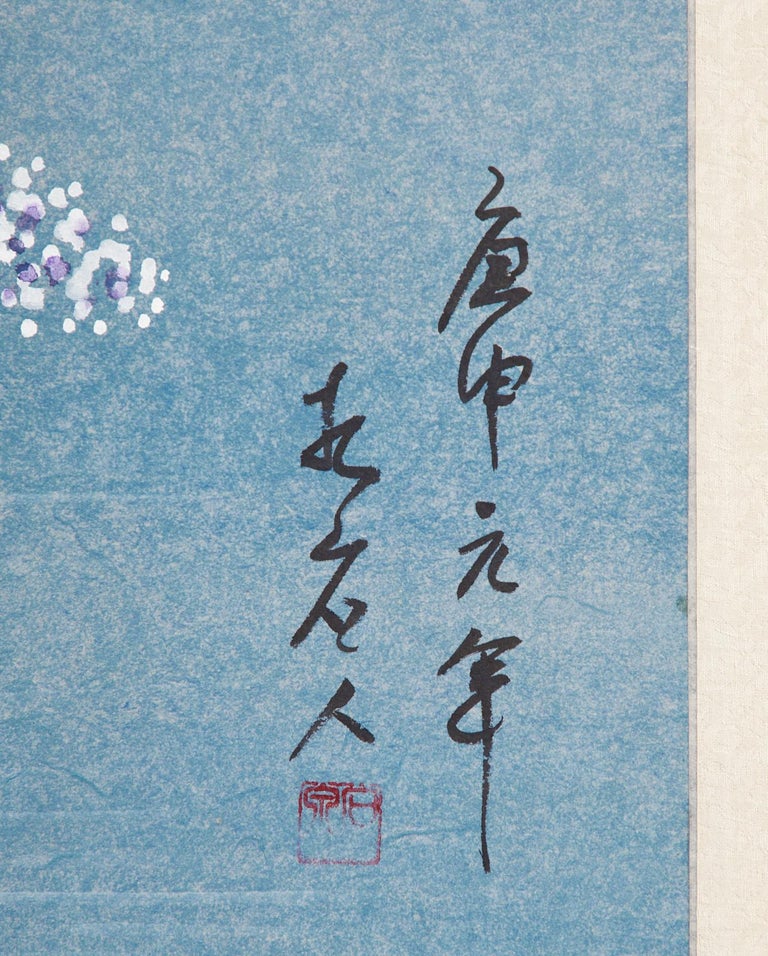 庚申元年
石人